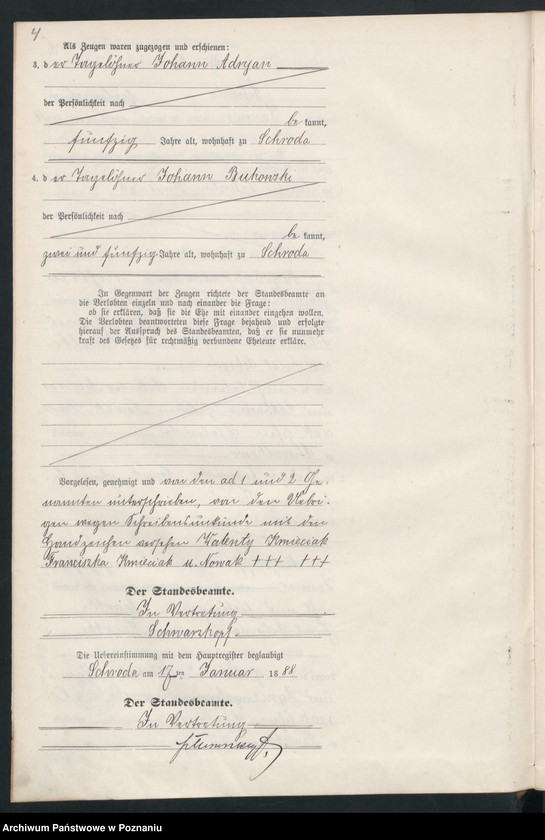 4
Als Zeugen waren zugezogen und erschienen:
3. der Tagelöhner Johann Adryan
der Persönlichkeit nach
be kannt,
fünfzig Jahre alt, wohnhaft zu Schroda
4. der Tagelöhner Johann Bukowski
der Persönlichkeit nach
be kannt,
zwei und fünfzig Jahre alt, wohnhaft zu Schroda
In Gegenwart der Zeugen richtete der Standesbeamte an
die Verlobten einzeln und nach einander die Frage:
ob sie erklären, daß sie die Ehe mit einander eingehen wollen.
Die Verlobten beantworteten diese Frage bejahend und erfolgte
hierauf der Ausspruch des Standesbeamten, daß er sie nunmehr
kraft des Gesetzes für rechtmäßig verbundene Eheleute erkläre.
Vorgelesen, genehmigt und von den ad 1 und 2 Ge-
nannten unterschrieben, von den Uebri-
gen wegen Schreibensunkunde mit den
Handzeichen versehen Walenty Kmieciak
Franciszka Kmieciak u. Nowak +++ +++
Der Standesbeamte.
In Vertretung
Schwarzkopf.
Die Uebereinstimmung mit dem Hauptregister beglaubigt
Schroda am 17ten Januar 1888
Der Standesbeamte.
In Vertretung
Archiwum Państwowe w Poznaniu